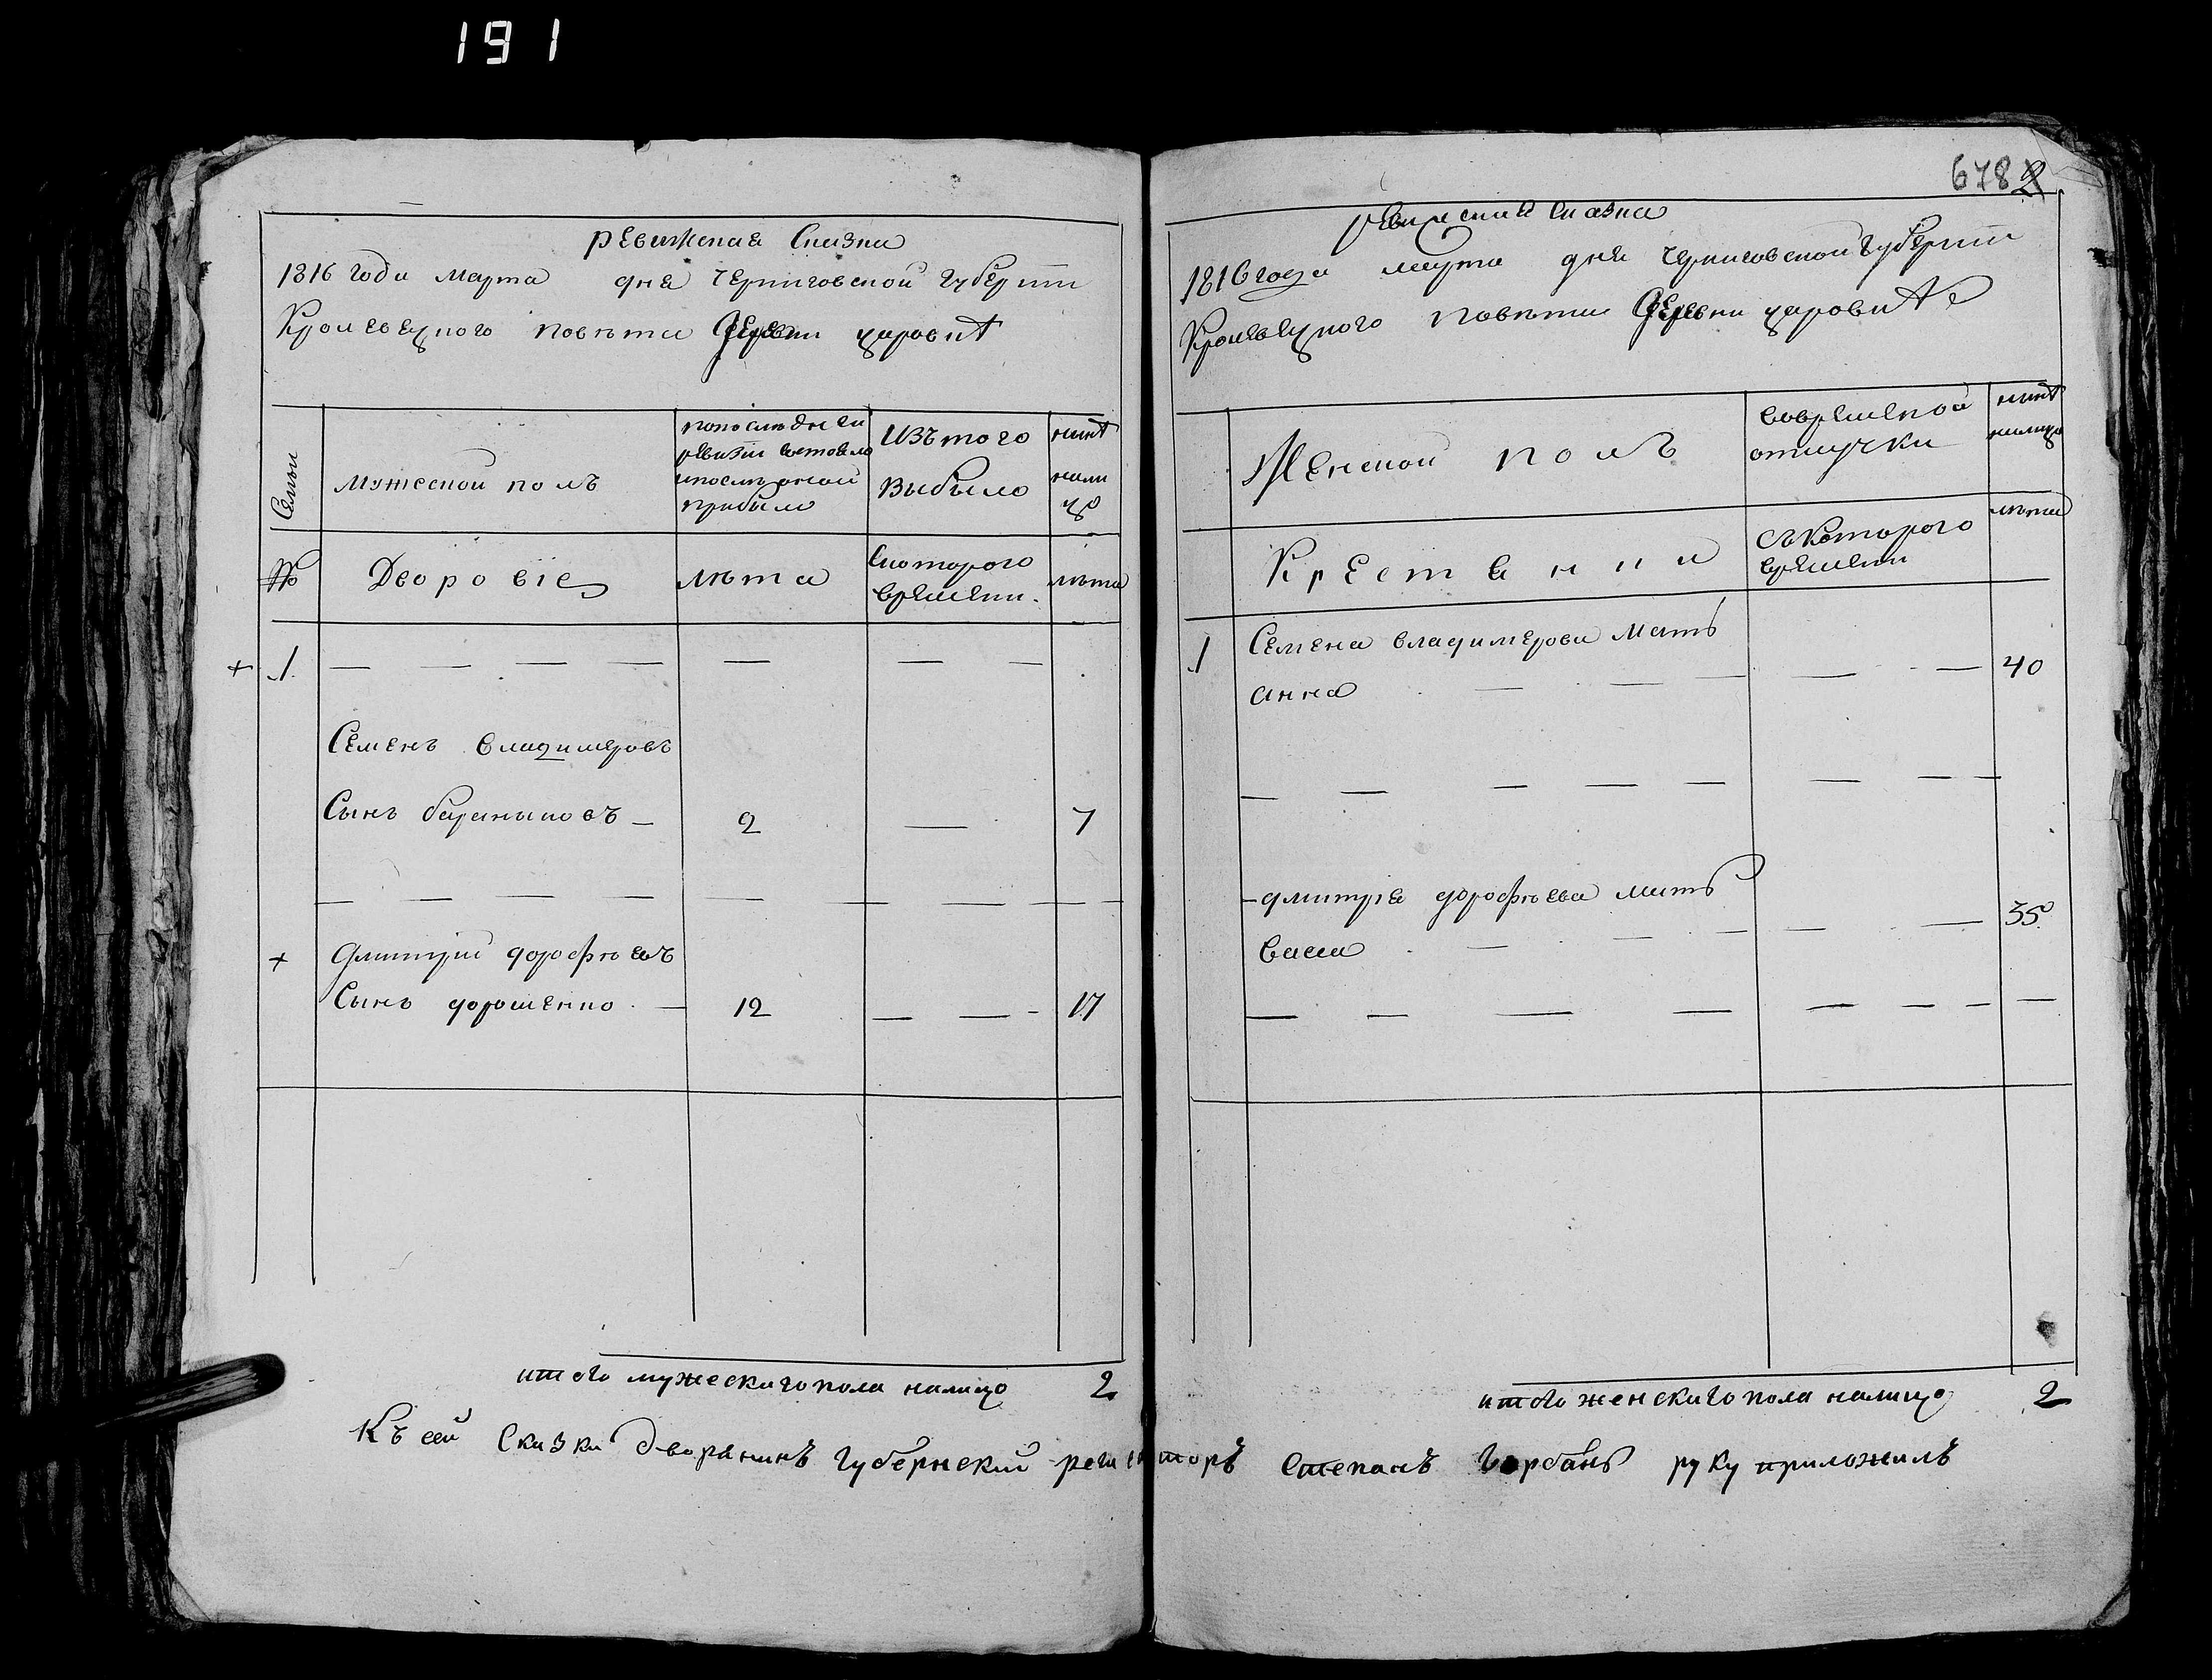 191
ревижская Сказка
1816 года марта дня черниговской губернии
Кролевецкого повѣта деревни
Семьи
мужеской полъ
попослѣдней
ревизiи состояло
ипослѣ оной
прибыло
Изъ того
Выбыло
ныне
нали
цо
№
Дворовiе
лѣта
Скоторого
времени.
лѣта
+ 1.
Семенъ владимеровъ
Сынъ бараныковъ
2
7
+ дмитрiй дорофѣевъ
Сынъ дорошенко
12
17
итого мужескаго пола налицо 2
678 2
ревижская Сказка
1816 года марта дня черниговской губернiи
Кролевецкого повѣта деревни
Женской полъ
Крестянки
Вовременой
отлучки
съ Которого
времени
ныне
налицо
лѣта
1 Семена владимерова мать
анна
40
дмитрiя дорофѣева мать
васса
35
итого женскаго пола налицо 2
Къ сей Сказки дворянинъ губернский регистторъ Степанъ Горбань руку приложилъ